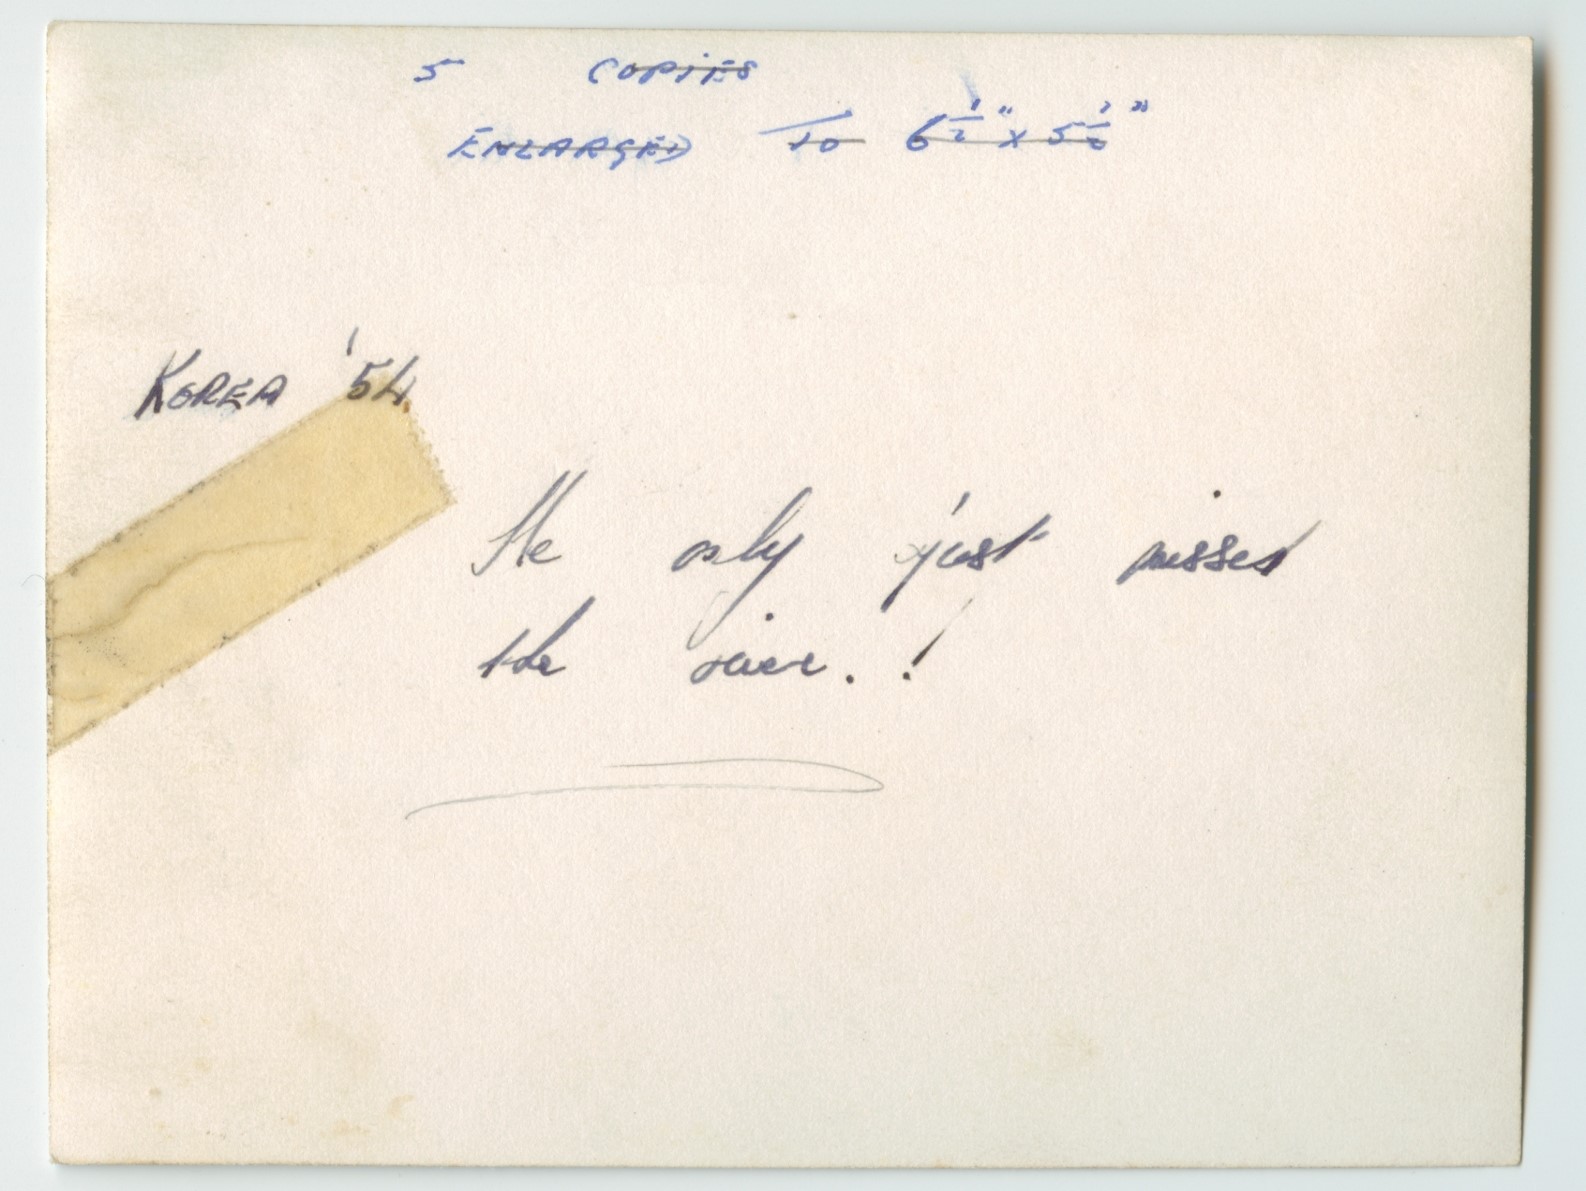 5 COPIES
ENLARGED TO 6 1/2" x 5 1/2"
KOREA '54
He only just misses
the river. !